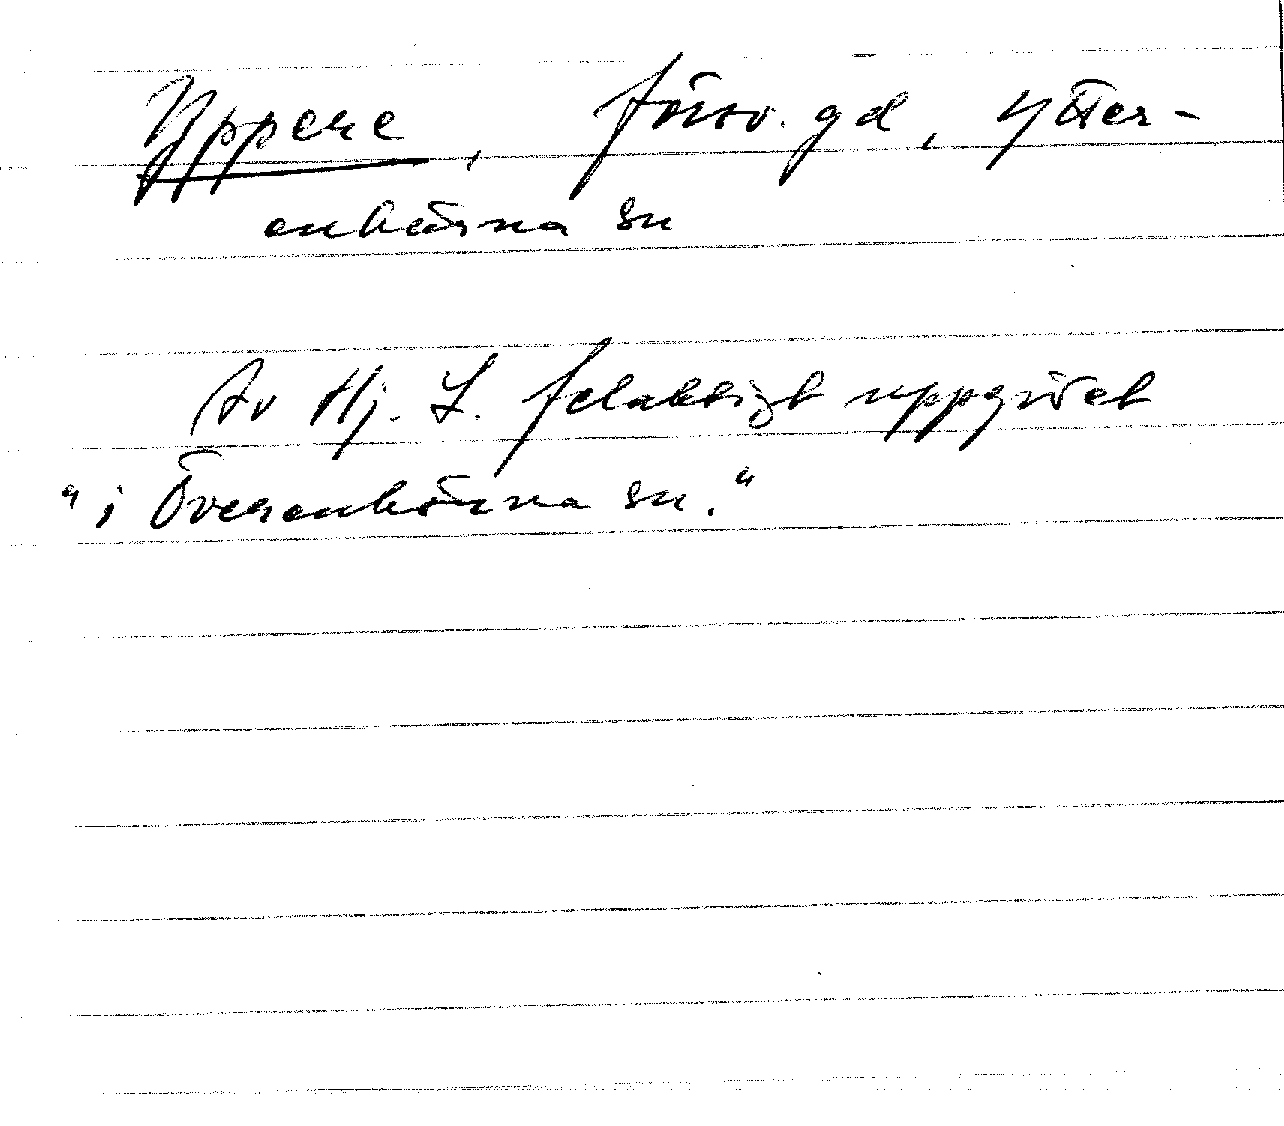 Yppere, försv. gd, Ytter-
enhörna sn
Av Hj. L. felaktigt uppgivet
"i Överenhörna sn."